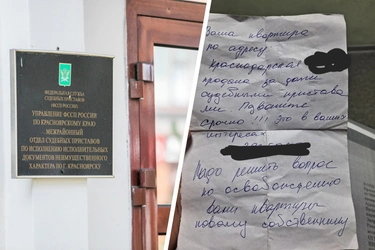 ФЕДЕРАЛЬНАЯ СЛУЖБА
СУДЕБНЫХ ПРИСТАВОВ
(ФССП РОССИИ)
УПРАВЛЕНИЕ ФССП РОССИИ
ПО КРАСНОЯРСКОМУ КРАЮ
МЕЖРАЙОННЫЙ
ОТДЕЛ СУДЕБНЫХ ПРИСТАВОВ
ПО ИСПОЛНЕНИЮ ИСПОЛНИТЕЛЬНЫХ
ДОКУМЕНТОВ НЕИМУЩЕСТВЕННОГО
ХАРАКТЕРА ПО Г. КРАСНОЯРСКУ
Ваша квартира
по адресу
Краснодарская
продана за долги
судебными пристава
ми Позвоните
срочно !!! Это в ваших
интересах
Надо решить вопрос
по освобождению
вами квартиры
новому собственнику